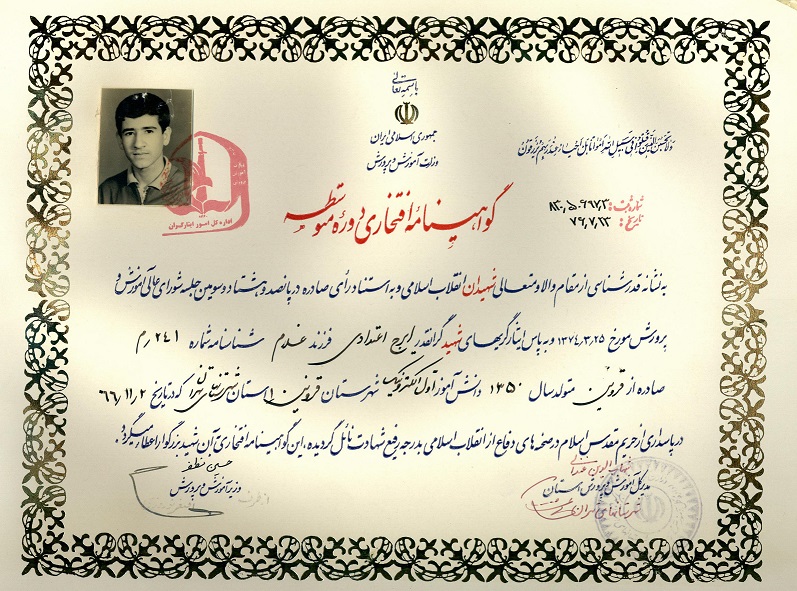 باسمه تعالی
جمهوری اسلامی ایران
وزارت آموزش و پرورش
ولا تحسبن الذین قتلوا فی سبیل الله امواتا بل احیاء عند ربهم یرزقون
شماره ثبت:
تاریخ: ۷۹,۷,۲۳
اداره کل امور ایثارگران
گواهینامهٔ افتخاری دورهٔ متوسطه
به نشانه قدرشناسی از مقام والا و متعالی شهیدان انقلاب اسلامی و به استناد رأی صادره در پانصد و هشتاد و سومین جلسه شورای عالی آموزش و
پرورش مورخ ۱۳۷۴,۳,۲۵ و به پاس ایثارگریهای شهید گرانقدر ایرج اعتدادی فرزند شناسنامه شماره ۲۴۱ م
صادره از قزوین متولد سال ۱۳۵۰ دانش آموز اول الکترونیک شهرستان قزوین استان که در تاریخ ۶۶,۱۱,۲
در پاسداری از حریم مقدس اسلام در صحنه های دفاع از انقلاب اسلامی به درجه رفیع شهادت نائل گردیده، این گواهینامه افتخاری آن شهید بزرگوار اعطا میگردد.
مدیر کل آموزش و پرورش استان
حسین مظفر
وزیر آموزش و پرورش